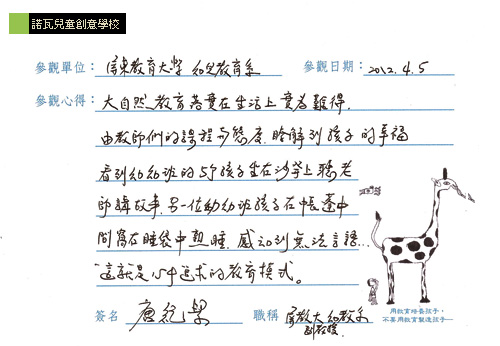 諾瓦兒童創意學校
參觀單位： 屏東教育大學 幼兒教育系 參觀日期： 2012.4.5
參觀心得： 大自然教育落實在生活上實為難得.
由教師們的課程與態度, 瞭解到孩子的幸福
看到幼幼班的5個孩子坐在沙子上聽老
師講故事, 另一位幼幼班孩子在帳蓬中
間窩在睡袋中熟睡, 感動到無法言語...
這就是心中追求的教育模式。
簽名 職稱 屏教大 幼教系
副教授
用教育培養孩子，
不要用教育製造孩子